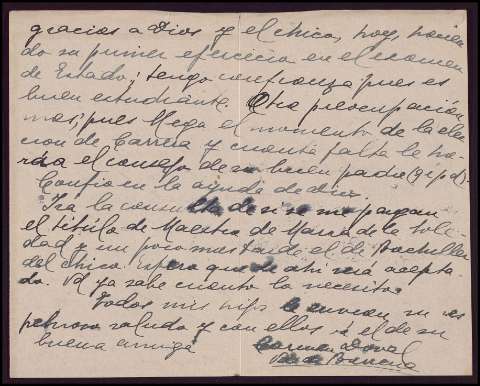 gracias a Dios y el chico, hoy, hacien
do su primer ejercicio en el examen
de Estado; tengo confianza pues es
buen estudiante. Otra preocupación
mas; pues llega el momento de la elec
cion de Carrera y cuanta falta le ha-
rá el consejo de su buen padre (q.e.p.d.)-
Confio en la ayuda de dios.
el titulo de Maestra de la Sole
dad y un poco mas tarde el de Bachiller
del chico. Espero que de ahi sea acepta-
do. Vd ya sabe cuanto lo necesito.
Todos mis hijos le envian su res
petuoso saludo y con ellos el de su
buena amiga
Carmen